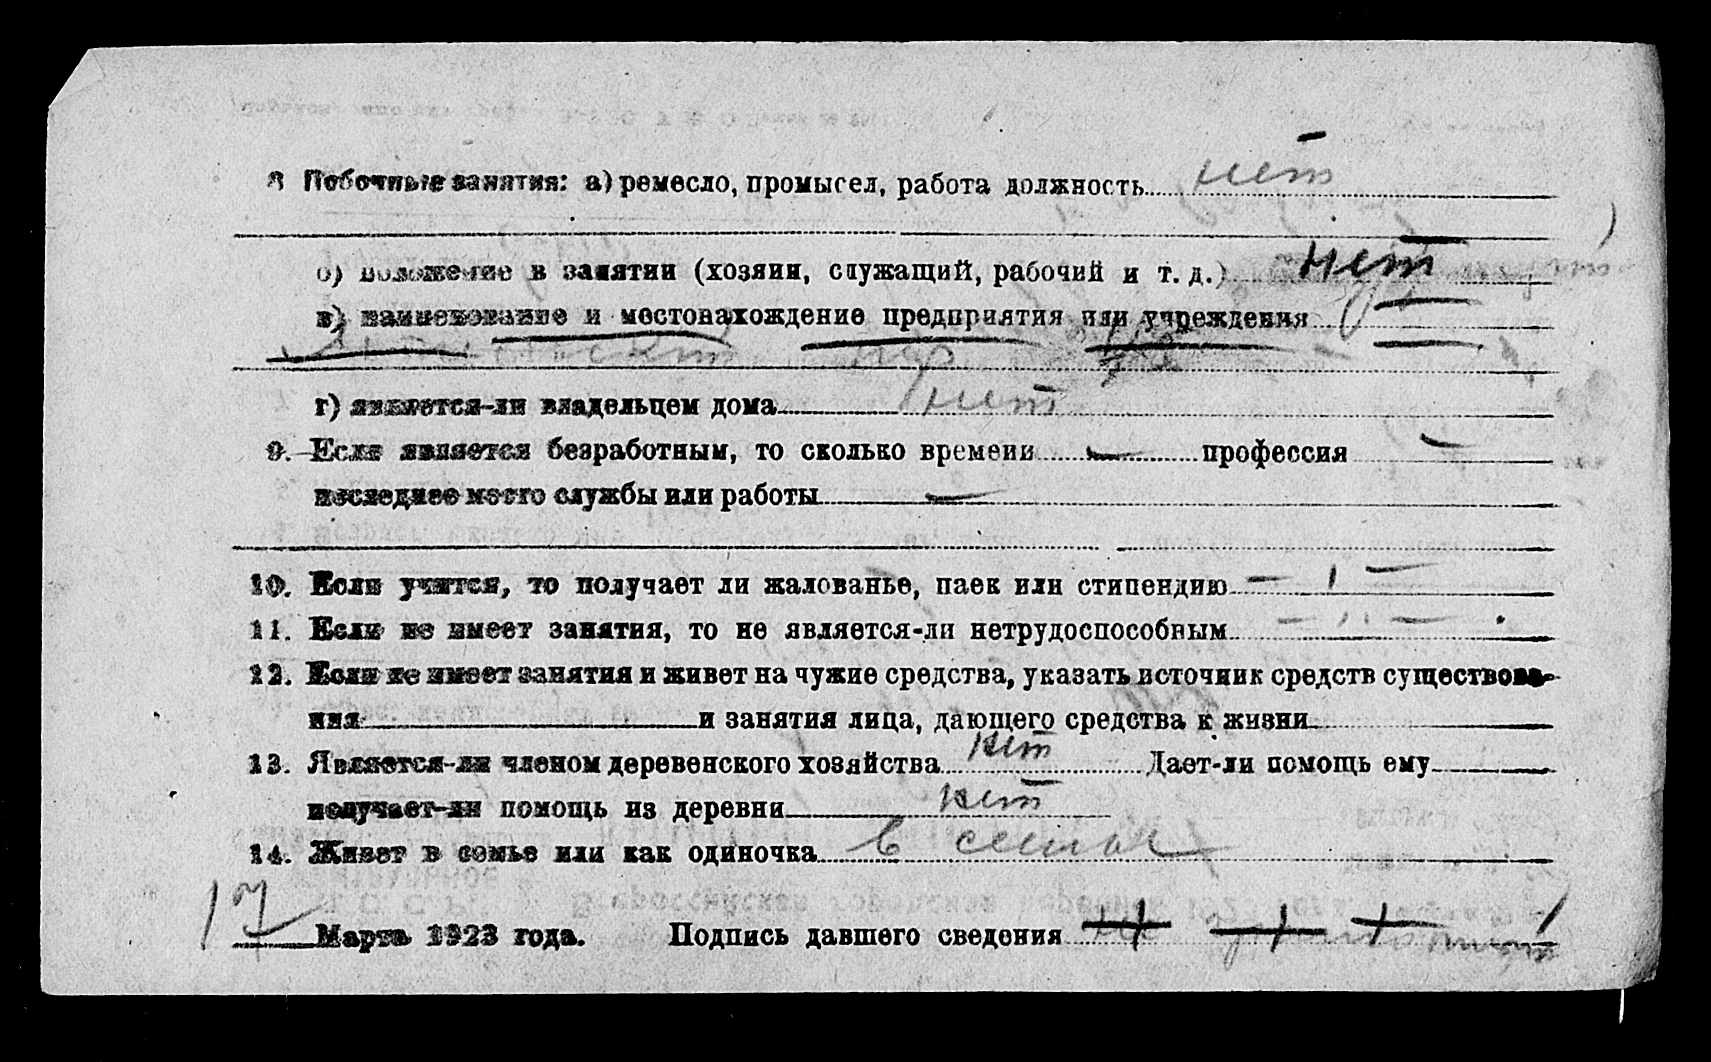 8 Побочные занятия: а) ремесло, промысел, работа должность нет
б) положение в занятии (хозяин, служащий, рабочий и т. д.) нет
в) наименование и местонахождение предприятия или учреждения
г) является-ли владельцем дома нет
9. Если является безработным, то сколько времени — профессия —
последнее место службы или работы —
10. Если учится, то получает ли жалованье, паек или стипендию — „ —
11. Если не имеет занятия, то не является-ли нетрудоспособным — „ —
12. Если не имеет занятия и живет на чужие средства, указать источник средств существова-
ния и занятия лица, дающего средства к жизни
13. Является-ли членом деревенского хозяйства нет Дает-ли помощь ему
получает-ли помощь из деревни нет
14. Живет в семье или как одиночка В семье
17 Марта 1923 года. Подпись давшего сведения + + +